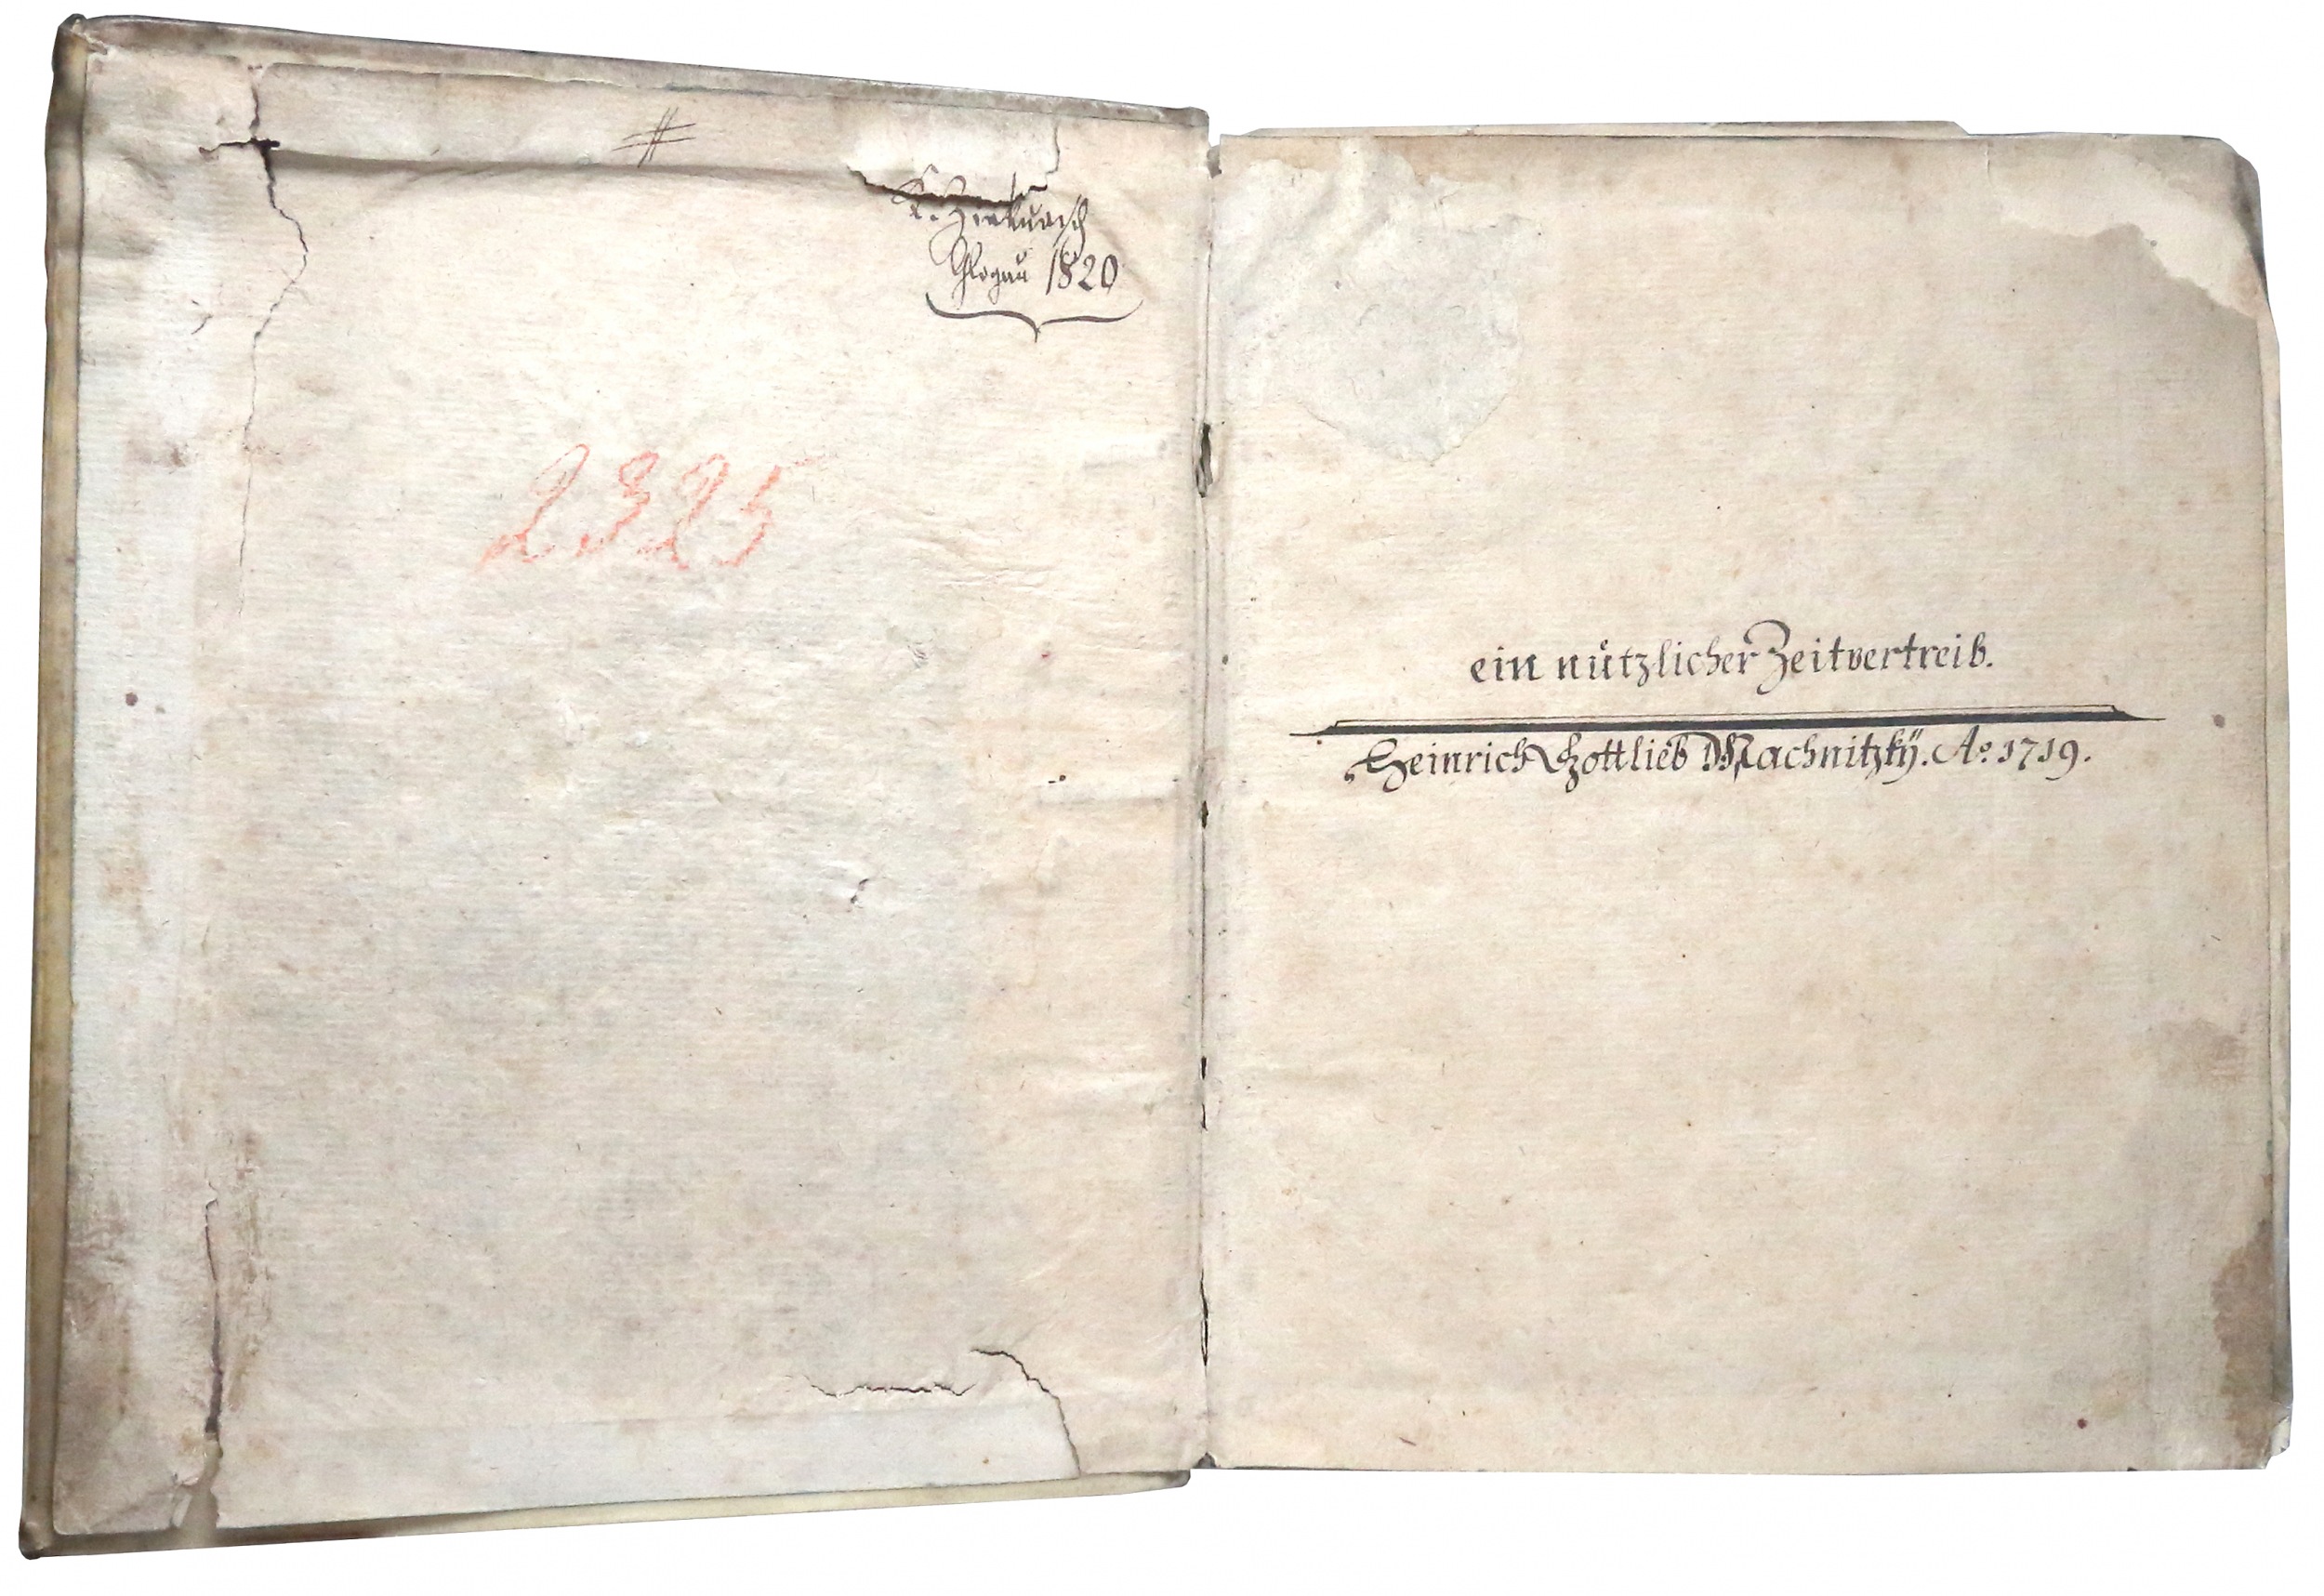 #
Glogau 1820
2325
ein nützlicher Zeitvertreib.
Heinrich Gottlieb Machnitzkÿ. Ao. 1719.